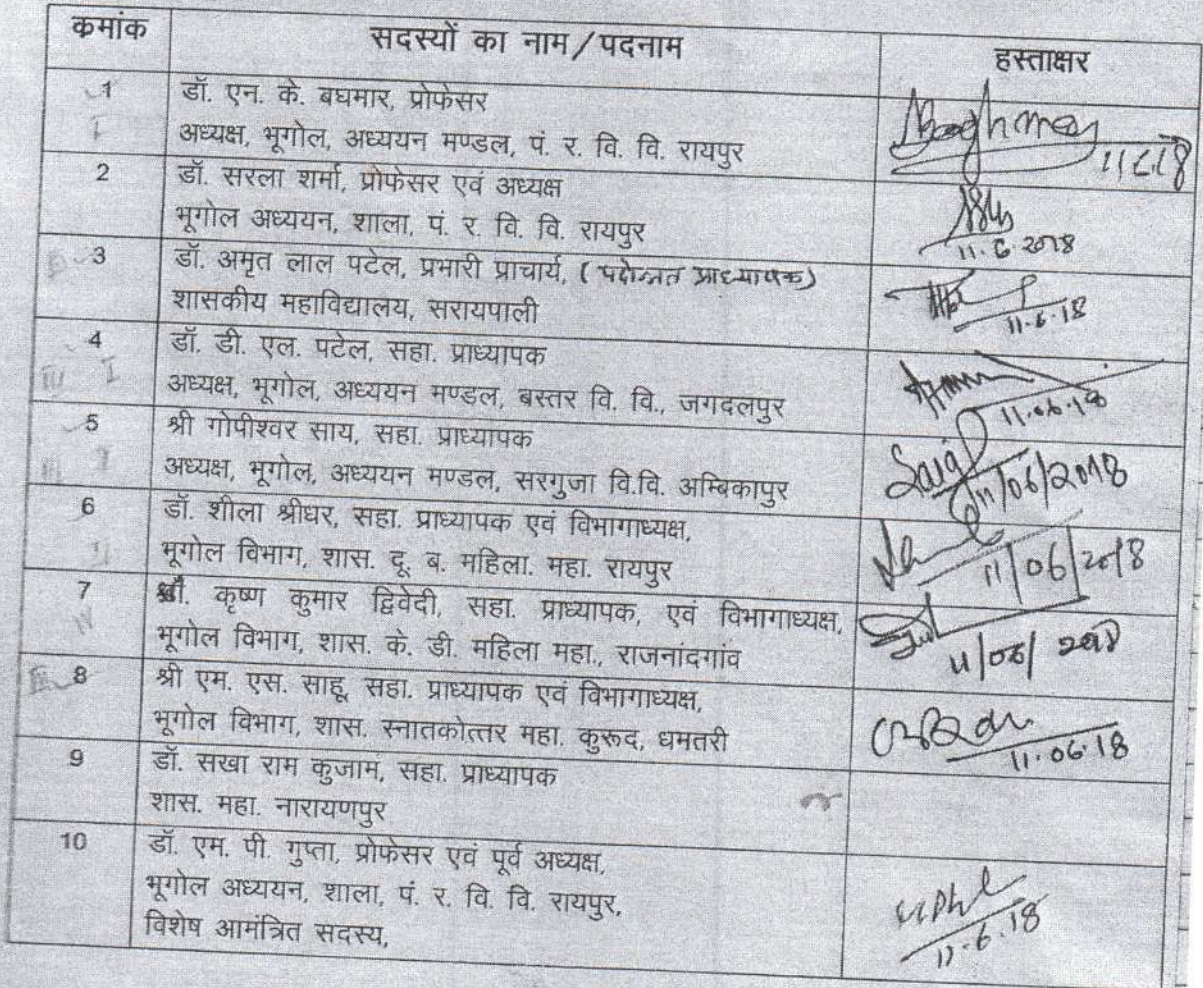 कमांक सदस्यों का नाम/पदनाम हस्ताक्षर
1 डॉ. एन. के. बघमार, प्रोफेसर
I अध्यक्ष, भूगोल, अध्ययन मण्डल, पं. र. वि. वि. रायपुर
2 डॉ. सरला शर्मा, प्रोफेसर एवं अध्यक्ष
भूगोल अध्ययन, शाला, पं. र. वि. वि. रायपुर
11.6.2018
3 डॉ. अमृत लाल पटेल, प्रभारी प्राचार्य, (पदोन्नत प्राध्यापक)
शासकीय महाविद्यालय, सरायपाली
11.6.18
4 डॉ. डी. एल. पटेल, सहा. प्राध्यापक
III I अध्यक्ष, भूगोल, अध्ययन मण्डल, बस्तर वि. वि., जगदलपुर
11.06.18
5 श्री गोपीश्वर साय, सहा. प्राध्यापक
अध्यक्ष, भूगोल, अध्ययन मण्डल, सरगुजा वि.वि. अम्बिकापुर
11/06/2018
6 डॉ. शीला श्रीधर, सहा. प्राध्यापक एवं विभागाध्यक्ष,
भूगोल विभाग, शास. दू. ब. महिला. महा. रायपुर
11/06/2018
7 कृष्ण कुमार द्विवेदी, सहा. प्राध्यापक, एवं विभागाध्यक्ष,
IV भूगोल विभाग, शास. के. डी. महिला महा., राजनांदगांव
11/06/2018
III 8 श्री एम. एस. साहू, सहा. प्राध्यापक एवं विभागाध्यक्ष,
भूगोल विभाग, शास. स्नातकोत्तर महा. कुरूद, धमतरी
11.06.18
9 डॉ. सखा राम कुजाम, सहा. प्राध्यापक
शास. महा. नारायणपुर
10 डॉ. एम. पी. गुप्ता, प्रोफेसर एवं पूर्व अध्यक्ष,
भूगोल अध्ययन, शाला, पं. र. वि. वि. रायपुर,
विशेष आमंत्रित सदस्य,
11.6.18